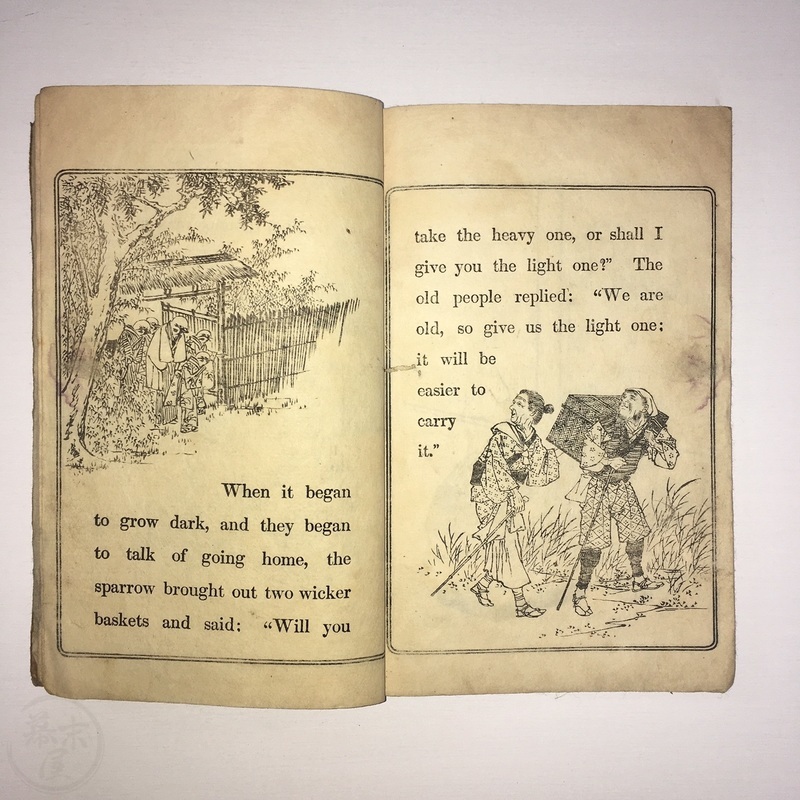 When it began
to grow dark, and they began
to talk of going home, the
sparrow brought out two wicker
baskets and said: “Will you
take the heavy one, or shall I
give you the light one?” The
old people replied: “We are
old, so give us the light one:
it will be
easier to
carry
it.”
幕末屋